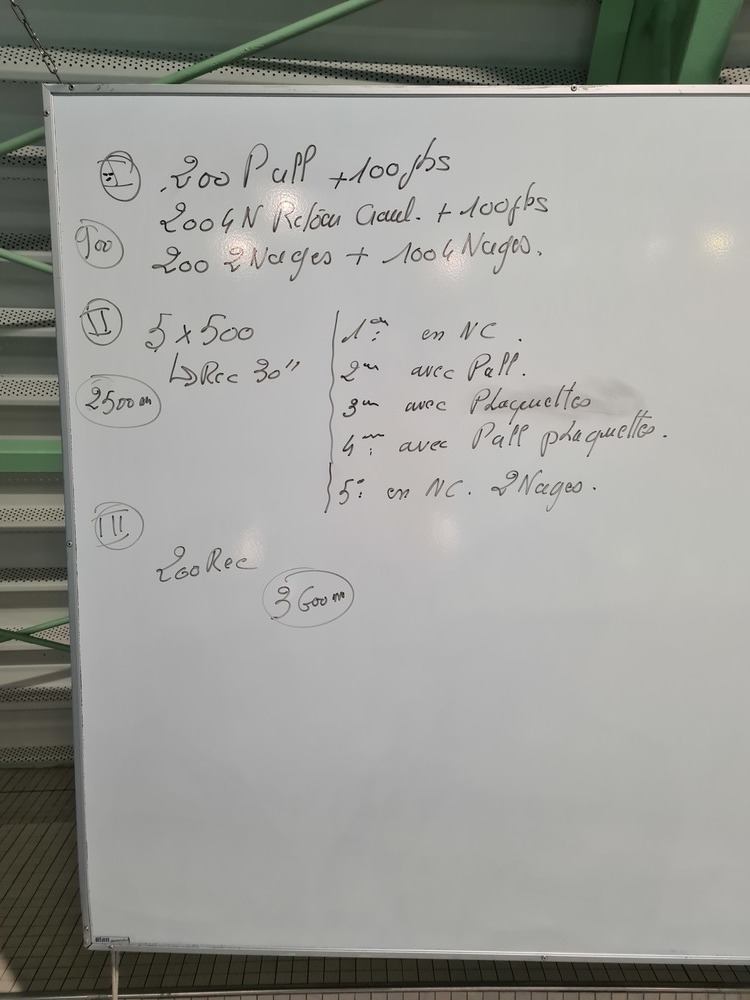 I 200 Pull + 100 jbs
200 4N Retour Craul. + 100 jbs
900 200 2Nages + 100 4Nages.
II 5 x 500
↳ Rec 30"
2500m
1er : en NC.
2em avec Pull.
3em avec PLaquettes
4em : avec Pull pLaquettes.
5 : en NC. 2Nages.
III
200 Rec
3600m